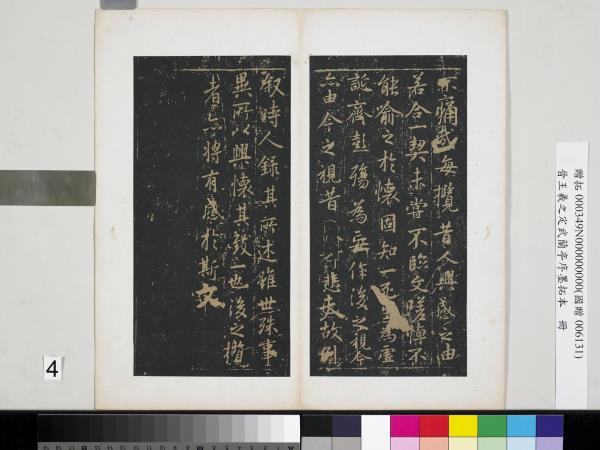 不痛哉每攬昔人興感之由
若合一契未嘗不臨文嗟悼不
能喻之於懷固知一死生為虛
誕齊彭殤為妄作後之視今
亦由今之視昔悲夫故列
敘時人錄其所述雖世殊事
異所以興懷其致一也後之攬
者亦將有感於斯文
贈拓 000349N000000000(國贈 006131)
晉王羲之定武蘭亭序墨拓本 冊
4